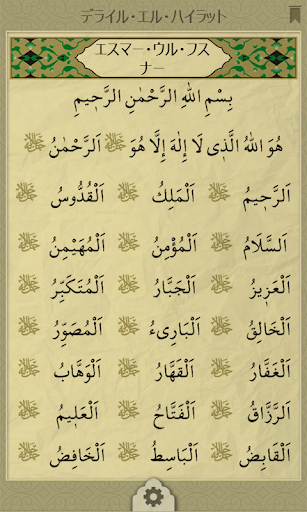 デライル・エル・ハイラット
エスマー・ウル・フス
ナー
بِسْمِ اللهِ الرَّحْمٰنِ الرَّحٖيمِ
هُوَ اللهُ الَّذٖى لَا إِلٰهَ إِلَّا هُوَ ﷻ اَلرَّحْمٰنُ
اَلرَّحٖيمُ ﷻ اَلْمَلِكُ ﷻ اَلْقُدُّوسُ ﷻ
اَلسَّلَامُ ﷻ اَلْمُؤْمِنُ ﷻ اَلْمُهَيْمِنُ ﷻ
اَلْعَزٖيزُ ﷻ اَلْجَبَّارُ ﷻ اَلْمُتَكَبِّرُ ﷻ
اَلْخَالِقُ ﷻ اَلْبَارِىءُ ﷻ اَلْمُصَوِّرُ ﷻ
اَلْغَفَّارُ ﷻ اَلْقَهَّارُ ﷻ اَلْوَهَّابُ ﷻ
اَلرَّزَّاقُ ﷻ اَلْفَتَّاحُ ﷻ اَلْعَلٖيمُ ﷻ
اَلْقَابِضُ ﷻ اَلْبَاسِطُ ﷻ اَلْخَافِضُ ﷻ